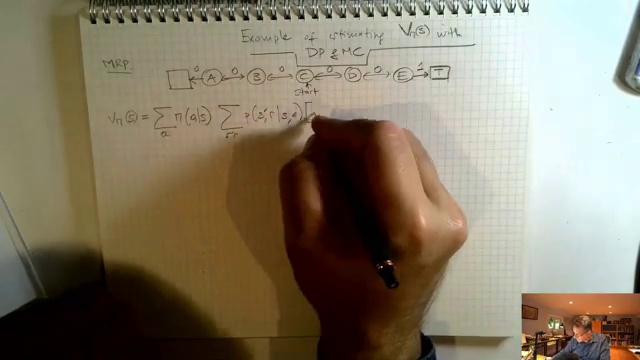 Example of estimating Vπ(s) with
DP & MC
MRP
0 A 0 B 0 C 0 D 0 E 1 T
start
Vπ(s) = Σ π(a|s) Σ p(s',r|s,a) [
a s',r